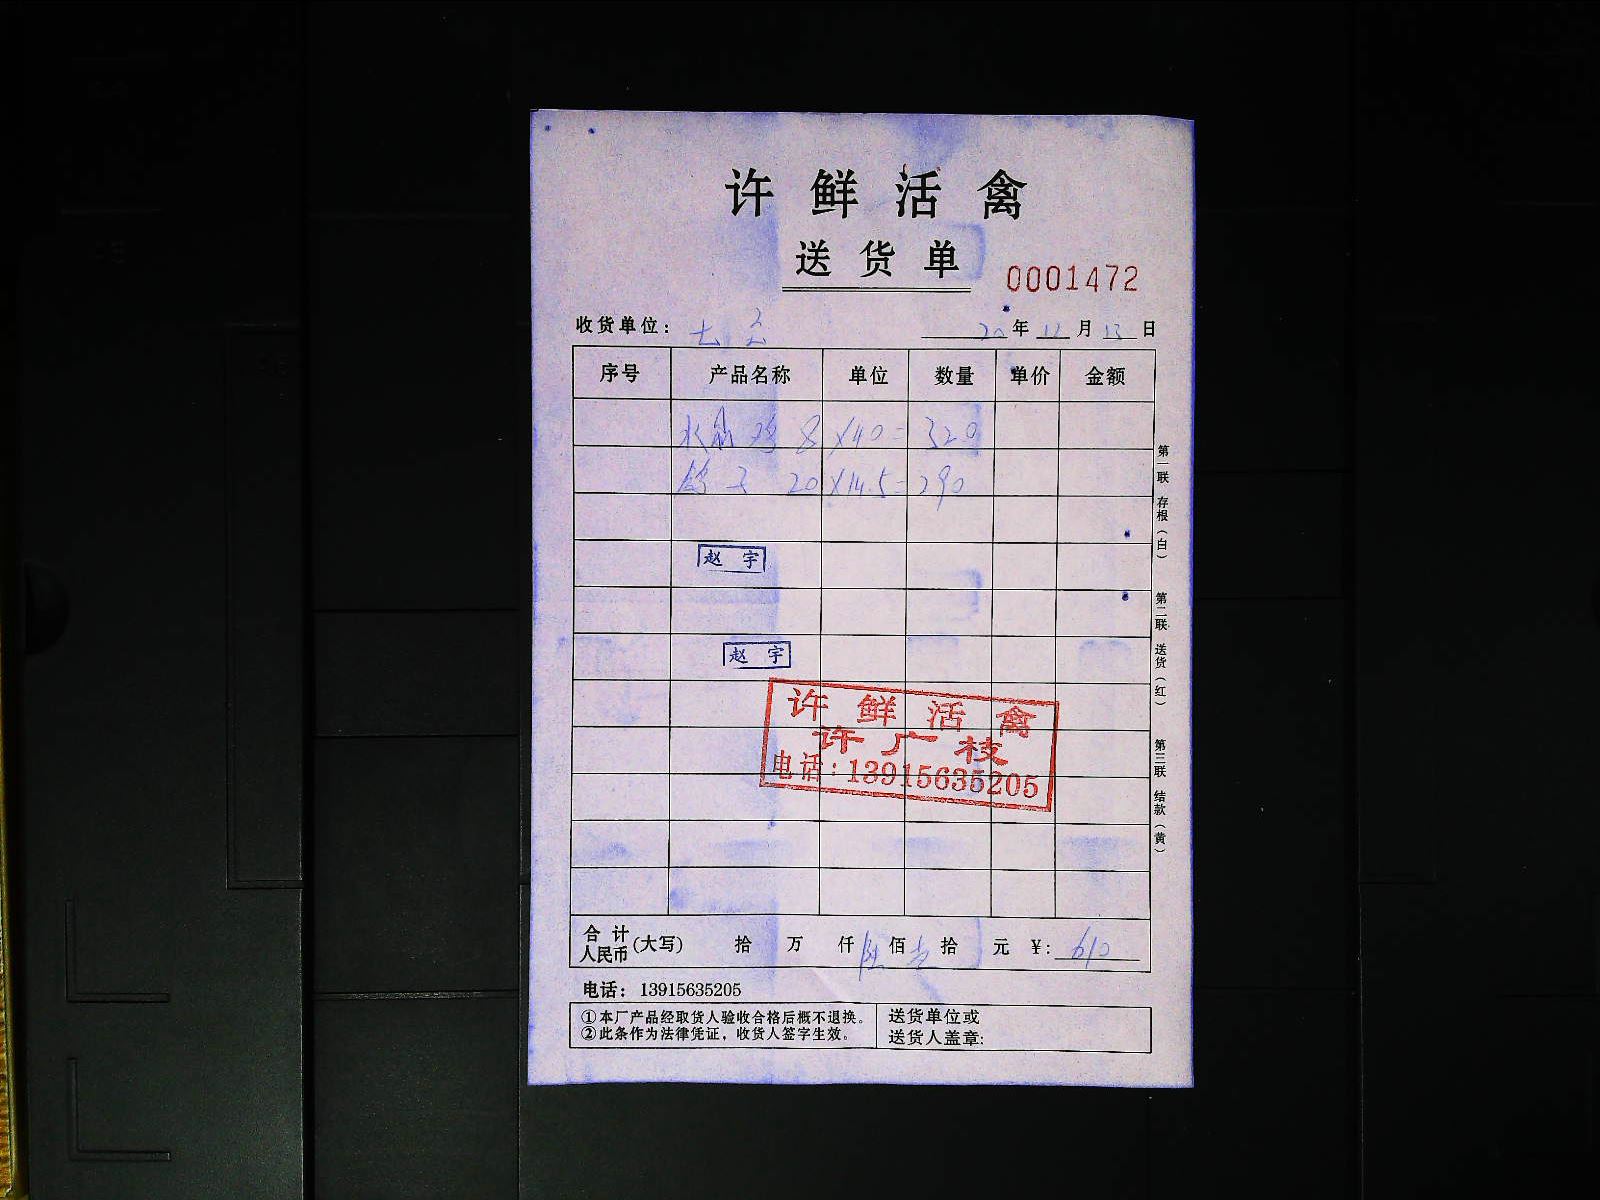 许鲜活禽
送货单
0001472
收货单位：
20年12月13日
序号 产品名称 单位 数量 单价 金额
鸡 8 X40=320
鸽子 20 X14.5=290
赵宇
赵宇
许鲜活禽
许广枝
电话:13915635205
第一联 存根（白） 第二联 送货（红） 第三联 结款（黄）
合计人民币(大写) 拾 万 仟陆佰壹拾 元 ￥:610
电话：13915635205
①本厂产品经取货人验收合格后概不退换。
②此条作为法律凭证，收货人签字生效。
送货单位或
送货人盖章: